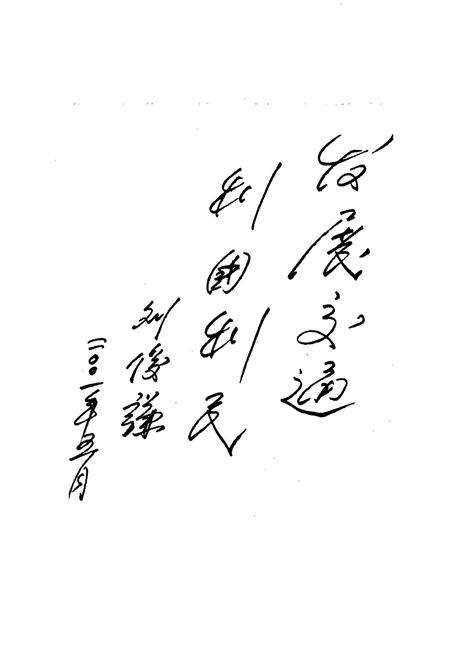 发展交通
利国利民
刘俊謙
二〇〇一年五月